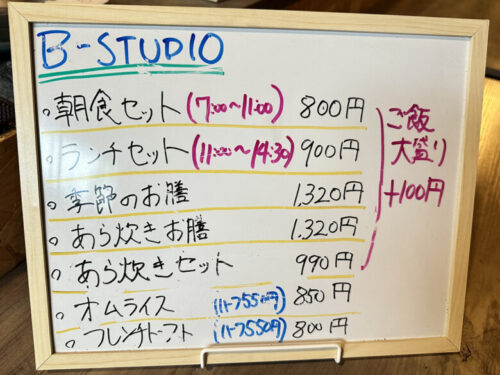 B-STUDIO
。朝食セット (7:00~11:00) 800円
。ランチセット (11:00~14:30) 900円
。季節のお膳 1,320円
。あら炊きお膳 1,320円
。あら炊きセット 990円
。オムライス (ハーフ550円) 850円
。フレンチトースト (ハーフ550円) 800円
ご飯
大盛り
+100円